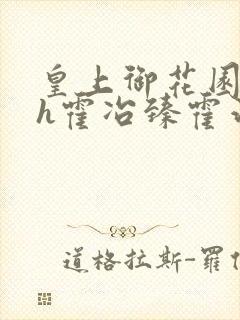 皇上御花园
h霍冶臻霍
道格拉斯-羅